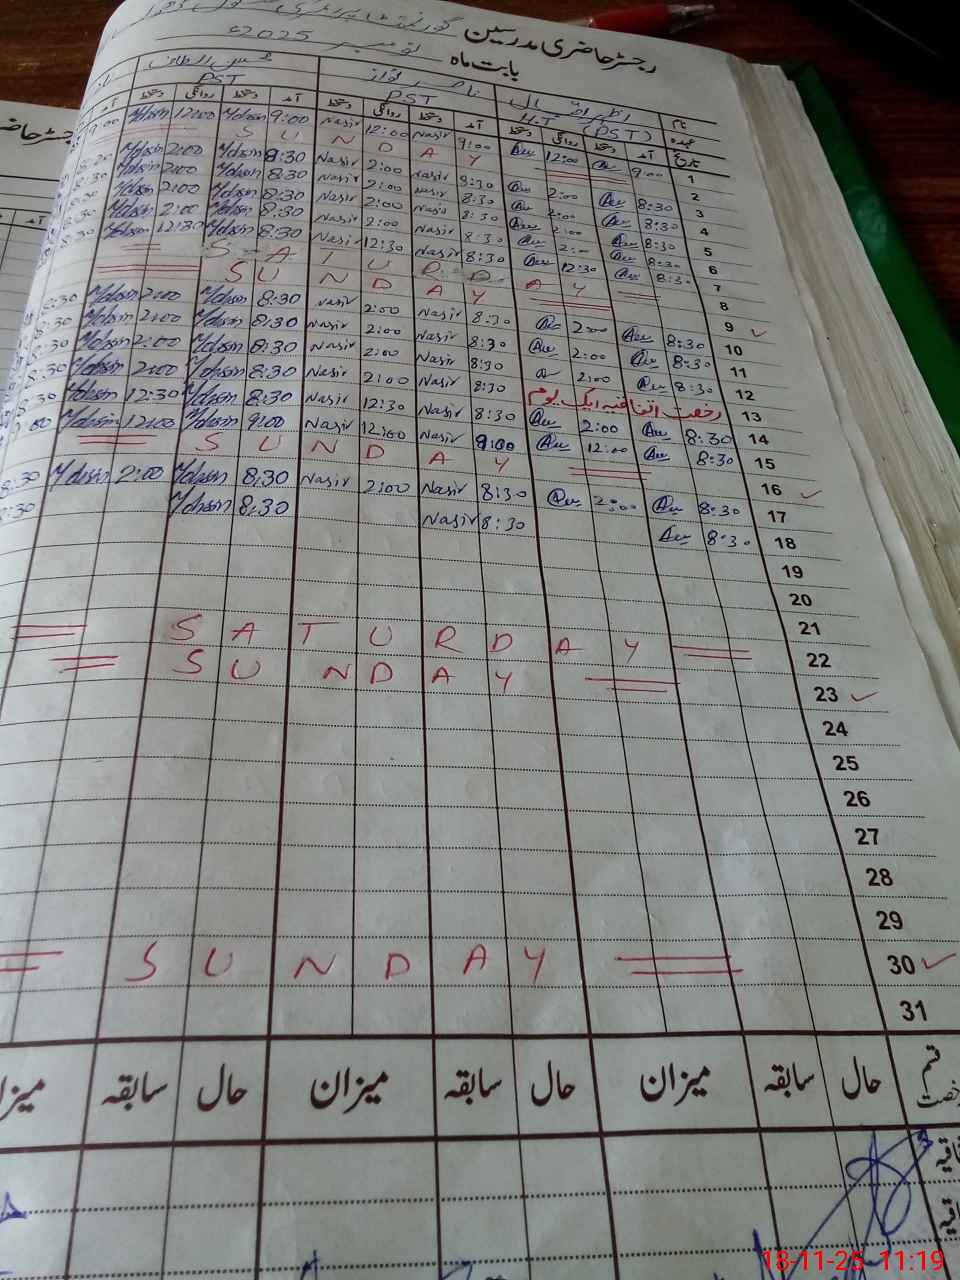 رجسٹر حاضری مدرسین گورنمنٹ پرائمری سکول
بابت ماہ نومبر 2025ء
نام اظہر اقبال ناصر نواز محسن الطاف
عہدہ H.T (PST) PST PST
تاریخ آمد دستخط روانگی دستخط آمد دستخط روانگی دستخط آمد دستخط روانگی دستخط آمد
9:00 Mohsin 12:00 Mohsin 9:00 Nasir 12:00 Nasir 9:00 12:00 9:00 1
S U N D A Y 2
8:30 Mohsin 2:00 Mohsin 8:30 Nasir 2:00 Nasir 8:30 2:00 8:30 3
8:30 Mohsin 2:00 Mohsin 8:30 Nasir 2:00 Nasir 8:30 2:00 8:30 4
8:30 Mohsin 2:00 Mohsin 8:30 Nasir 2:00 Nasir 8:30 2:00 8:30 5
8:30 Mohsin 2:00 Mohsin 8:30 Nasir 2:00 Nasir 8:30 2:00 8:30 6
8:30 Mohsin 12:30 Mohsin 8:30 Nasir 12:30 Nasir 8:30 12:30 8:30 7
S A T U R D A Y 8
S U N D A Y 9
8:30 Mohsin 2:00 Mohsin 8:30 Nasir 2:00 Nasir 8:30 2:00 8:30 10
8:30 Mohsin 2:00 Mohsin 8:30 Nasir 2:00 Nasir 8:30 2:00 8:30 11
8:30 Mohsin 2:00 Mohsin 8:30 Nasir 2:00 Nasir 8:30 2:00 8:30 12
8:30 Mohsin 2:00 Mohsin 8:30 Nasir 2:00 Nasir 8:30 رخصت اتفاقیہ ایک یوم 13
8:30 Mohsin 12:30 Mohsin 8:30 Nasir 12:30 Nasir 8:30 2:00 8:30 14
9:00 Mohsin 12:00 Mohsin 9:00 Nasir 12:00 Nasir 9:00 12:00 8:30 15
S U N D A Y 16
8:30 Mohsin 2:00 Mohsin 8:30 Nasir 2:00 Nasir 8:30 2:00 8:30 17
8:30 Mohsin 8:30 Nasir 8:30 8:30 18
19
20
21
S A T U R D A Y 22
S U N D A Y 23
24
25
26
27
28
29
S U N D A Y 30
31
قسم رخصت حال سابقہ میزان حال سابقہ میزان حال سابقہ میزان
18-11-25 11:19